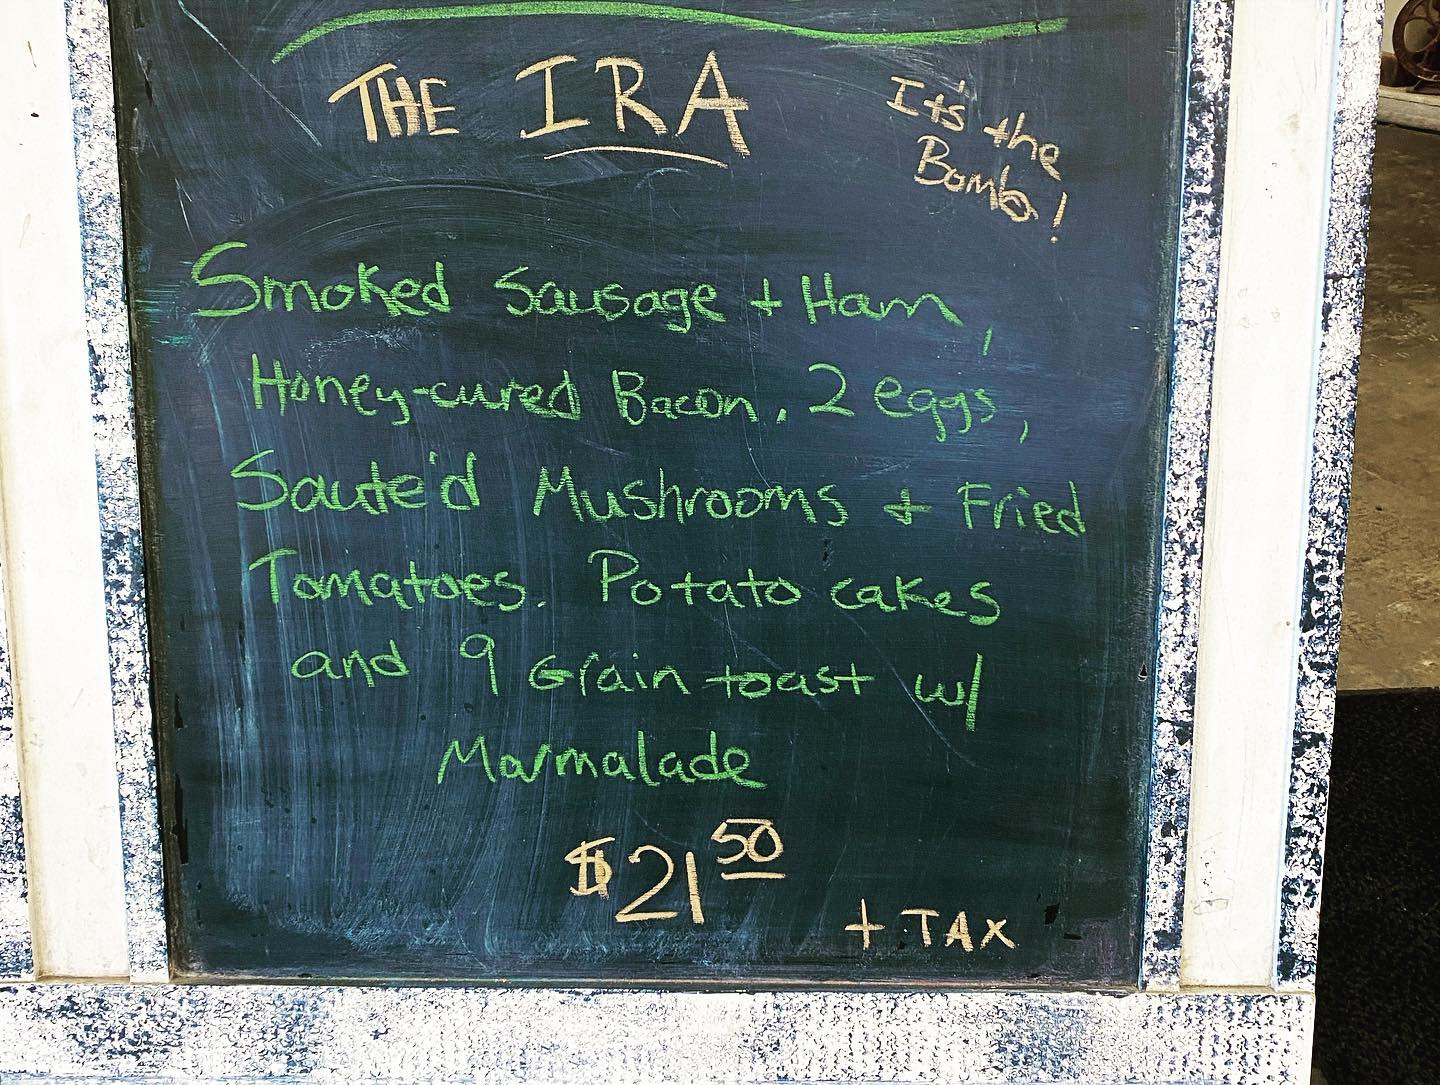 THE IRA
It's the
Bomb!
Smoked Sausage + Ham,
Honey-cured Bacon, 2 eggs,
Saute'd Mushrooms + Fried
Tomatoes. Potato cakes
and 9 Grain toast w/
Marmalade
$21 50
+ TAX